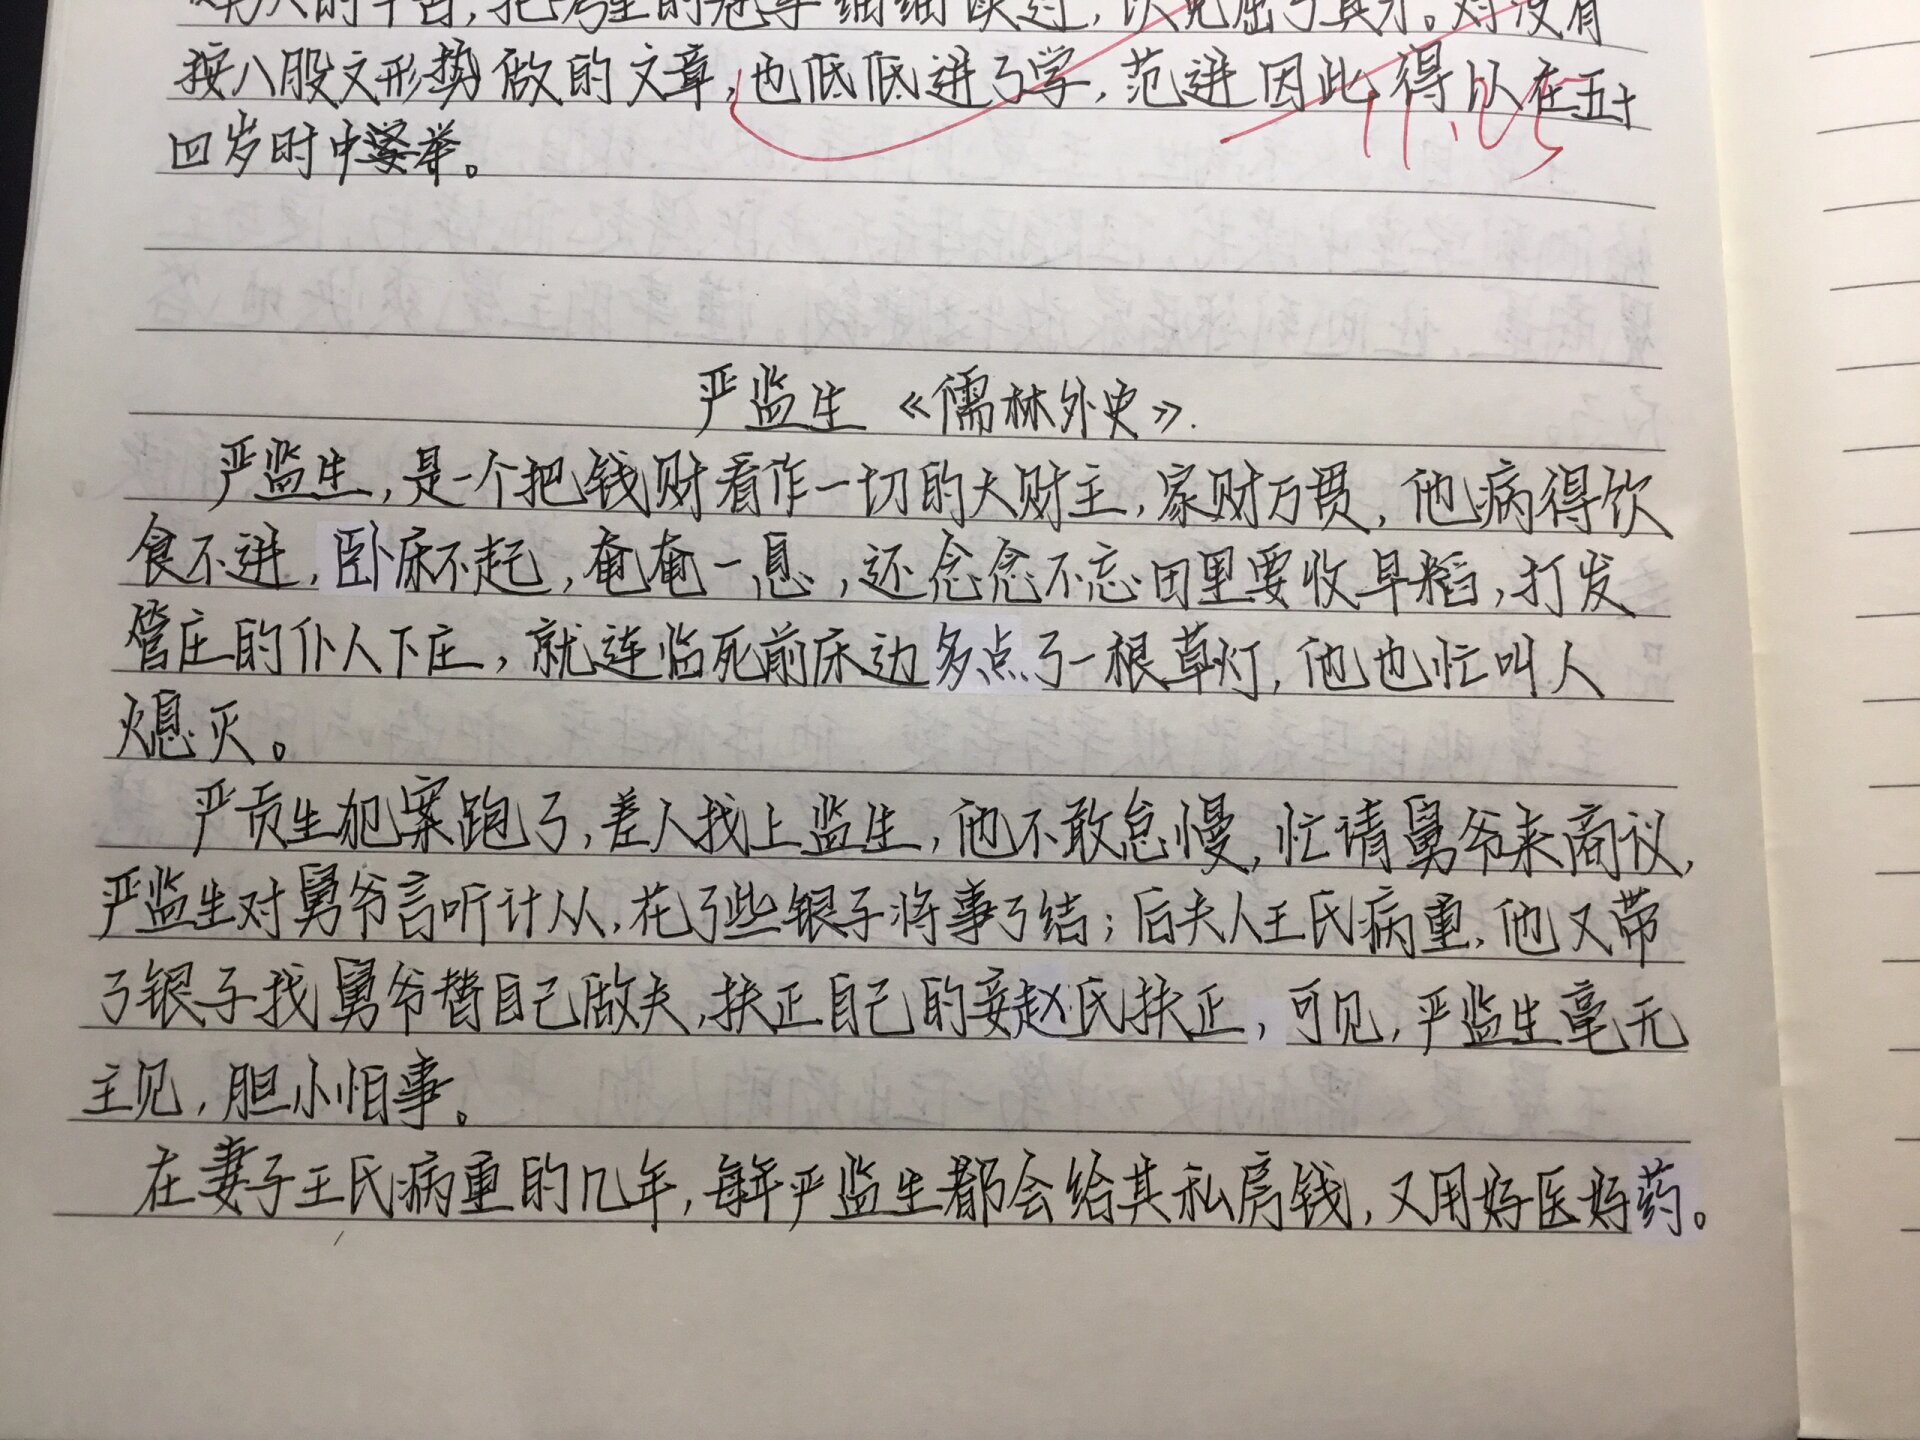 把考生的卷子细细读过,以免屈了真才。对没有
按八股文形势做的文章,也低低进了学,范进因此得以在五十
四岁时中举。
11.05
严监生《儒林外史》.
严监生,是一个把钱财看作一切的大财主,家财万贯,他病得饮
食不进,卧床不起,奄奄一息,还念念不忘田里要收早稻,打发
管庄的仆人下庄,就连临死前床边多点了一根草灯,他也忙叫人
熄灭。
严贡生犯案跑了,差人找上监生,他不敢怠慢,忙请舅爷来商议,
严监生对舅爷言听计从,花了些银子将事了结;后夫人王氏病重,他又带
了银子找舅爷替自己做夫,扶正自己的妾赵氏扶正,可见,严监生毫无
主见,胆小怕事。
在妻子王氏病重的几年,每年严监生都会给其私房钱,又用好医好药。